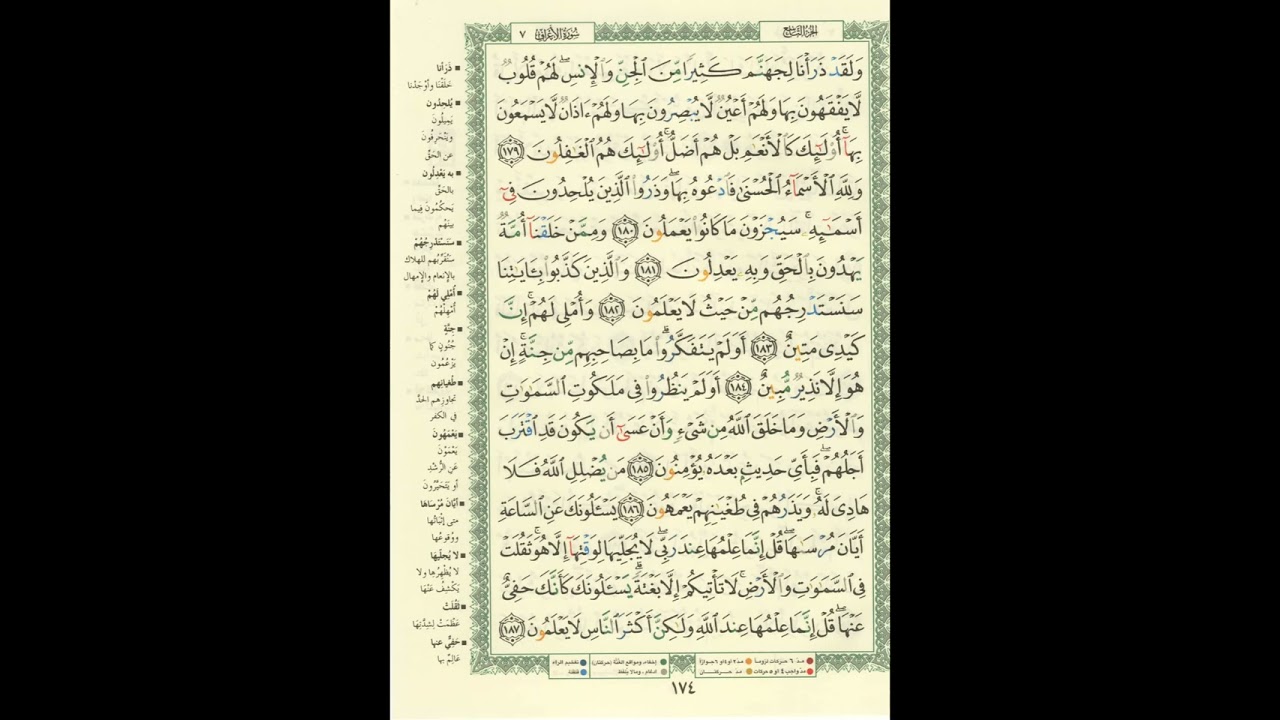 الجزء التاسع
سورة الأعراف ٧
وَلَقَدْ ذَرَأْنَا لِجَهَنَّمَ كَثِيرًا مِّنَ ٱلْجِنِّ وَٱلْإِنسِ ۖ لَهُمْ قُلُوبٌ
لَّا يَفْقَهُونَ بِهَا وَلَهُمْ أَعْيُنٌ لَّا يُبْصِرُونَ بِهَا وَلَهُمْ ءَاذَانٌ لَّا يَسْمَعُونَ
بِهَآ ۚ أُو۟لَـٰٓئِكَ كَٱلْأَنْعَـٰمِ بَلْ هُمْ أَضَلُّ ۚ أُو۟لَـٰٓئِكَ هُمُ ٱلْغَـٰفِلُونَ ١٧٩
وَلِلَّهِ ٱلْأَسْمَآءُ ٱلْحُسْنَىٰ فَٱدْعُوهُ بِهَا ۖ وَذَرُوا۟ ٱلَّذِينَ يُلْحِدُونَ فِىٓ
أَسْمَـٰٓئِهِۦ ۚ سَيُجْزَوْنَ مَا كَانُوا۟ يَعْمَلُونَ ١٨٠ وَمِمَّنْ خَلَقْنَآ أُمَّةٌ
يَهْدُونَ بِٱلْحَقِّ وَبِهِۦ يَعْدِلُونَ ١٨١ وَٱلَّذِينَ كَذَّبُوا۟ بِـَٔايَـٰتِنَا
سَنَسْتَدْرِجُهُم مِّنْ حَيْثُ لَا يَعْلَمُونَ ١٨٢ وَأُمْلِى لَهُمْ ۚ إِنَّ
كَيْدِى مَتِينٌ ١٨٣ أَوَلَمْ يَتَفَكَّرُوا۟ ۗ مَا بِصَاحِبِهِم مِّن جِنَّةٍ ۚ إِنْ
هُوَ إِلَّا نَذِيرٌ مُّبِينٌ ١٨٤ أَوَلَمْ يَنظُرُوا۟ فِى مَلَكُوتِ ٱلسَّمَـٰوَٰتِ
وَٱلْأَرْضِ وَمَا خَلَقَ ٱللَّهُ مِن شَىْءٍ وَأَنْ عَسَىٰٓ أَن يَكُونَ قَدِ ٱقْتَرَبَ
أَجَلُهُمْ ۖ فَبِأَىِّ حَدِيثٍۭ بَعْدَهُۥ يُؤْمِنُونَ ١٨٥ مَن يُضْلِلِ ٱللَّهُ فَلَا
هَادِىَ لَهُۥ ۚ وَيَذَرُهُمْ فِى طُغْيَـٰنِهِمْ يَعْمَهُونَ ١٨٦ يَسْـَٔلُونَكَ عَنِ ٱلسَّاعَةِ
أَيَّانَ مُرْسَىٰهَا ۖ قُلْ إِنَّمَا عِلْمُهَا عِندَ رَبِّى ۖ لَا يُجَلِّيهَا لِوَقْتِهَآ إِلَّا هُوَ ۚ ثَقُلَتْ
فِى ٱلسَّمَـٰوَٰتِ وَٱلْأَرْضِ ۚ لَا تَأْتِيكُمْ إِلَّا بَغْتَةً ۗ يَسْـَٔلُونَكَ كَأَنَّكَ حَفِىٌّ
عَنْهَا ۖ قُلْ إِنَّمَا عِلْمُهَا عِندَ ٱللَّهِ وَلَـٰكِنَّ أَكْثَرَ ٱلنَّاسِ لَا يَعْلَمُونَ ١٨٧
ذَرَأنا
خَلَقْنَا وأوْجَدْنا
يُلحِدُون
يَمِيلُونَ
وَيَنْحَرِفُونَ
عن الحَقِّ
به يَعْدِلُون
بالحَقِّ
يَحكُمُونَ فِيما
بينَهُم
سَنَسْتَدْرِجُهُمْ
سَنُقَرِّبُهم للهلاك
بالإنعام والإمهال
أُمْلِي لَهُمْ
أُمْهِلُهُمْ
جِنَّةٍ
جُنُونٍ كما
يَزْعُمُون
طُغيانِهِم
تجاوزِهم الحدَّ
في الكفر
يَعْمَهُونَ
يَعْمَوْنَ
عَنِ الرُّشْدِ
أو يَتَحَيَّرُونَ
أيّانَ مُرْسَاهَا
متى إثباتُها
ووقوعُها
لا يُجلِّيهَا
لا يُظْهِرُها ولا
يَكْشِفُ عَنْهَا
ثَقُلَتْ
عَظُمَتْ لِشِدَّتِهَا
حَفِيٌّ عنها
عَالِمٌ بها
مد ٦ حركات لزوماً مد ٢ أو ٤ أو ٦ جوازاً إخفاء، ومواقع الغُنَّة (حركتان) تفخيم الراء
مد واجب ٤ أو ٥ حركات مد حركتان ادغام، ومالا يُلفظ قلقلة
١٧٤